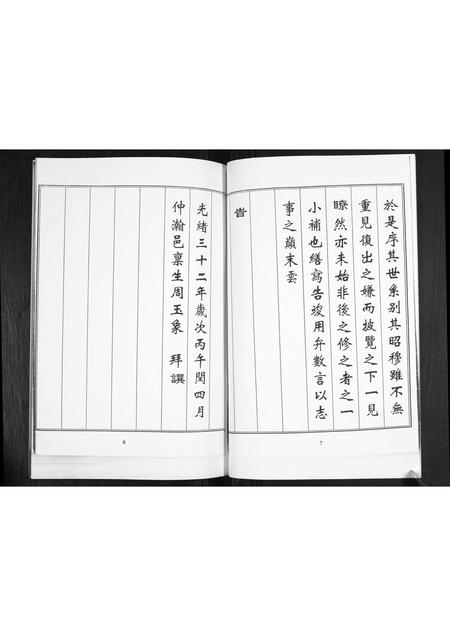 於是序其世系別其昭穆雖不無
重見復出之嫌而披覽之下一見
瞭然亦未始非後之修之者之一
小補也繕寫告竣用弁數言以志
事之巔末雲
旹
7
光緒三十二年歲次丙午閏四月
仲瀚邑稟生周玉象 拜譔
8